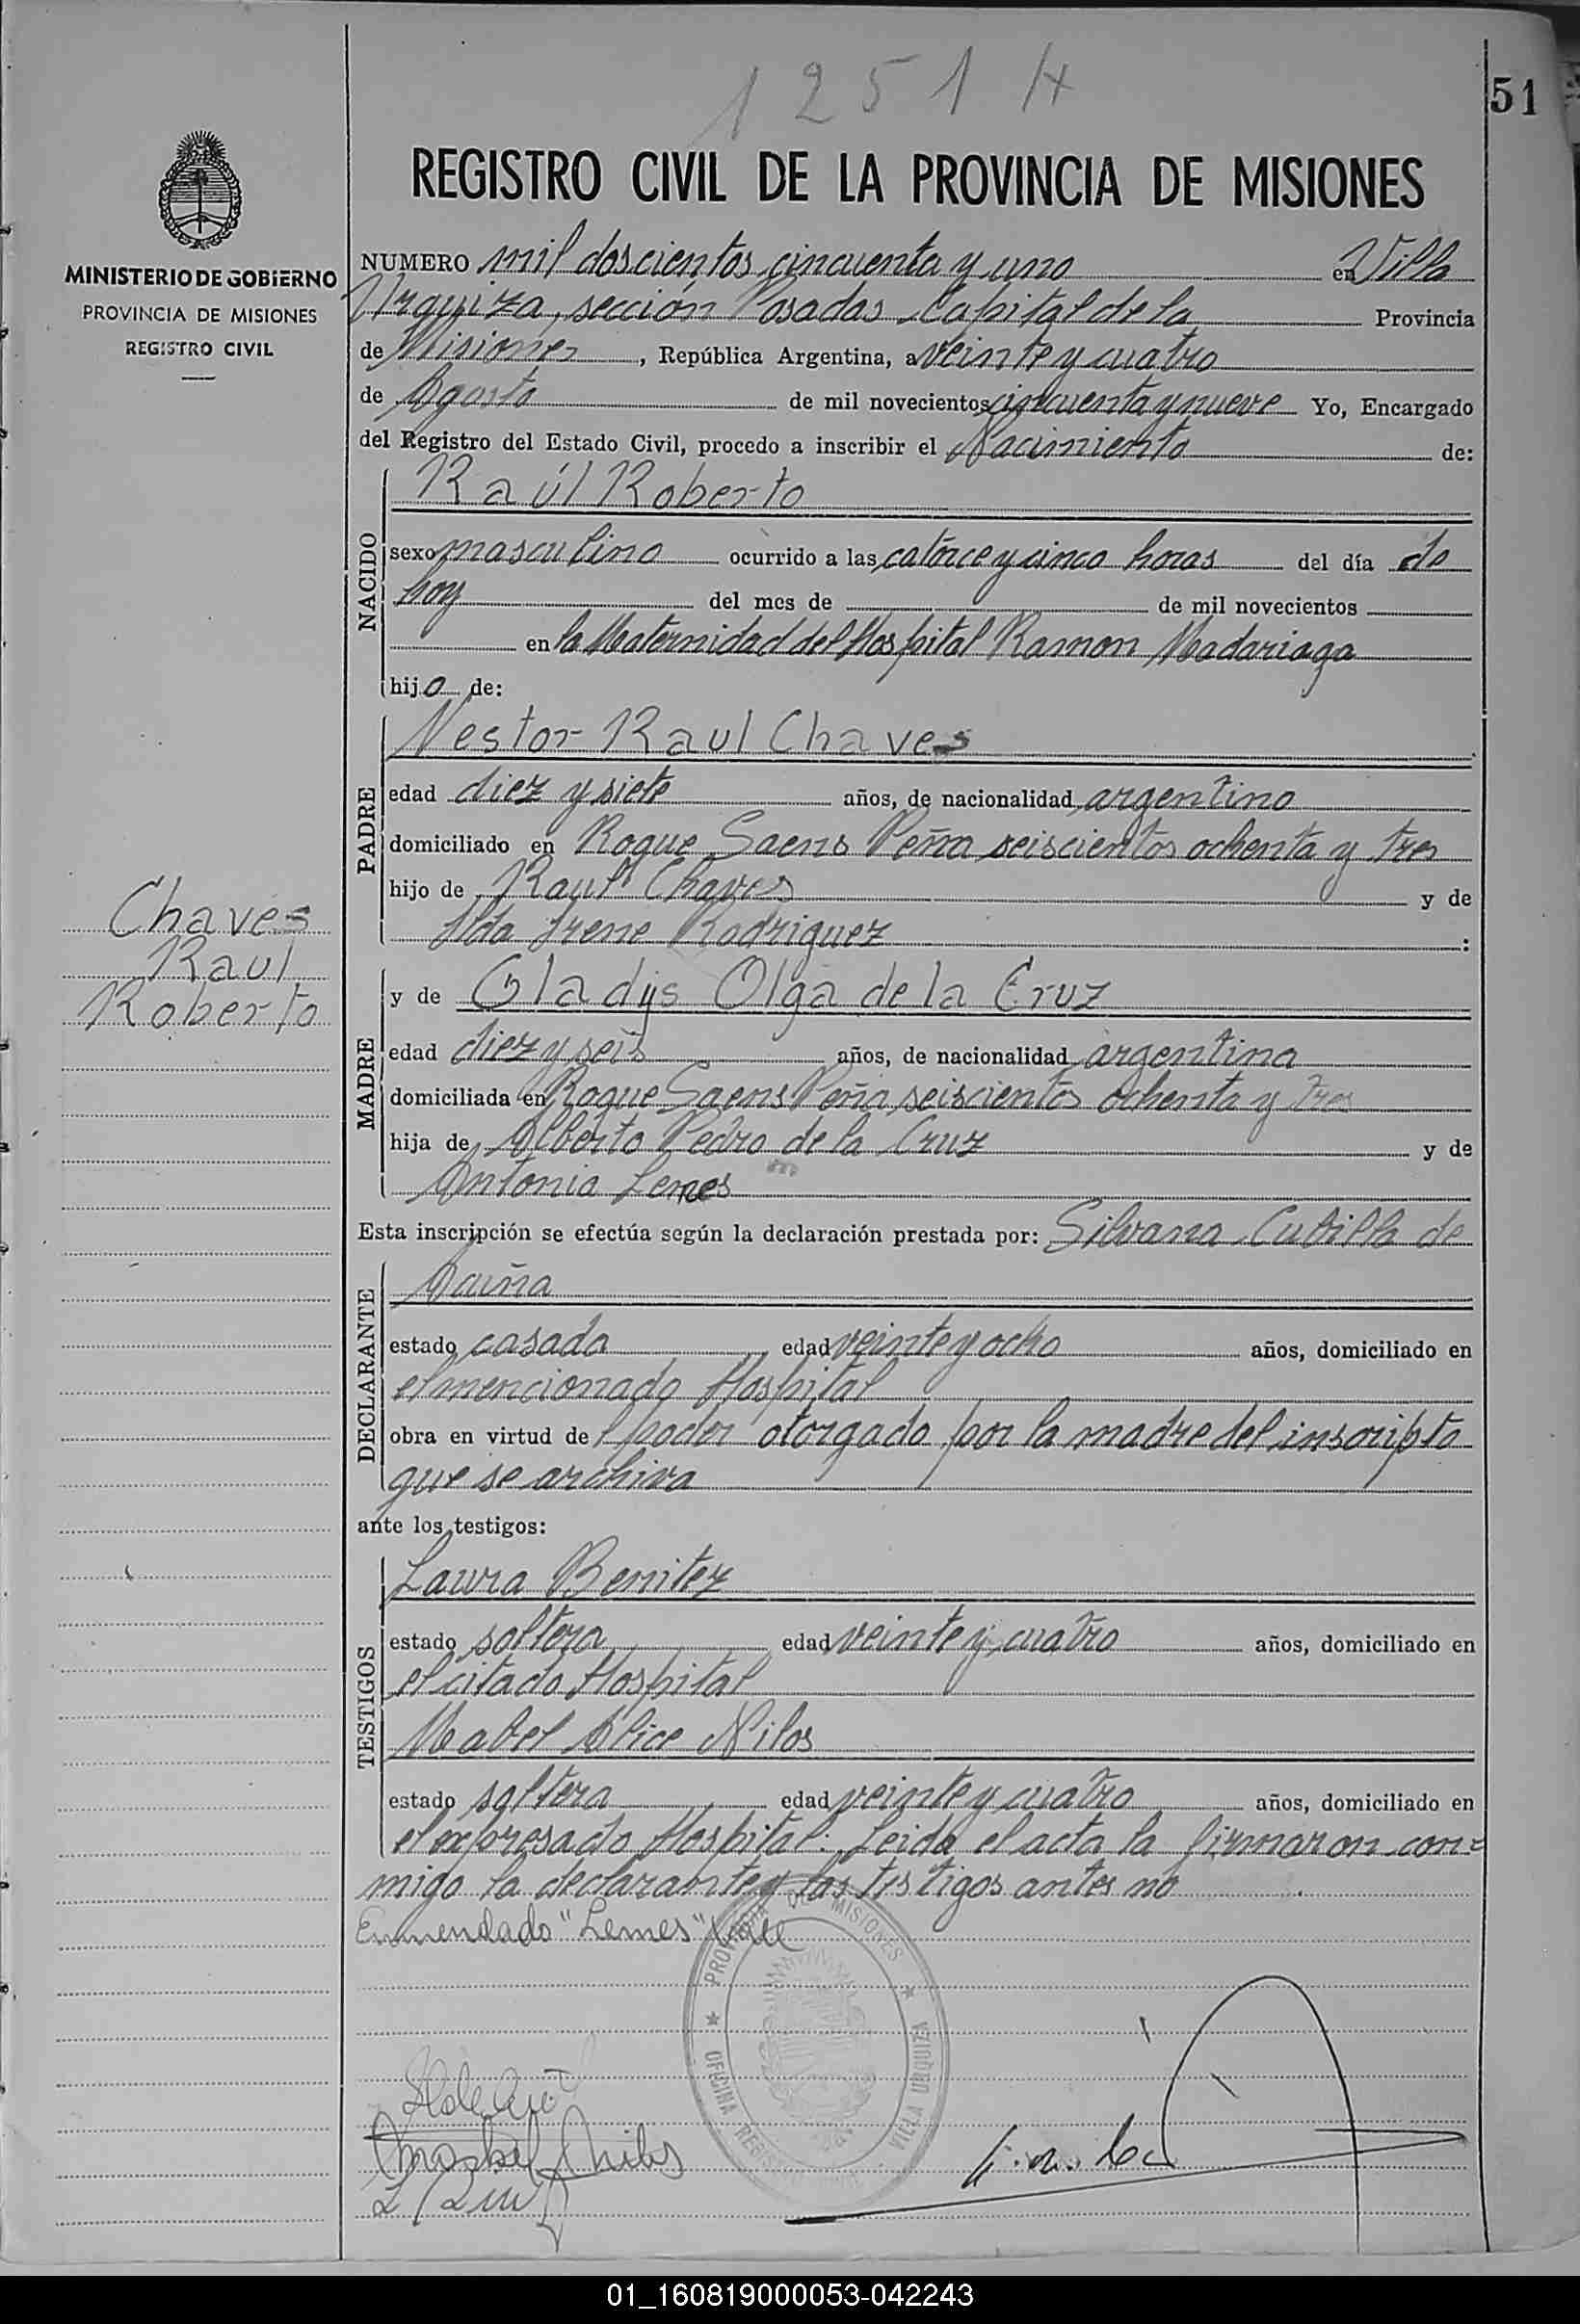 1251 H
51
REGISTRO CIVIL DE LA PROVINCIA DE MISIONES
MINISTERIO DE GOBIERNO
PROVINCIA DE MISIONES
REGISTRO CIVIL
NUMERO mil doscientos cincuenta y uno en Villa
Urquiza, sección Posadas Capital de la Provincia
de Misiones, República Argentina, a veinte y cuatro
de Agosto de mil novecientos cincuenta y nueve Yo, Encargado
del Registro del Estado Civil, procedo a inscribir el Nacimiento de:
NACIDO
Raúl Roberto
sexo masculino ocurrido a las catorce y cinco horas del día de
hoy del mes de de mil novecientos
en la Maternidad del Hospital Ramon Madariaga
hijo de:
PADRE
Nestor Raul Chaves
edad diez y siete años, de nacionalidad argentino
domiciliado en Roque Saens Peña seiscientos ochenta y tres
hijo de Raul Chaves y de
Ilda Irene Rodriguez:
Chaves
Raul
Roberto
MADRE
y de Gladys Olga de la Cruz
edad diez y seis años, de nacionalidad argentina
domiciliada en Roque Saens Peña seiscientos ochenta y tres
hija de Alberto Pedro de la Cruz y de
Antonia Lemes
Esta inscripción se efectúa según la declaración prestada por: Silvana Cubilla de
DECLARANTE
estado casada edad veinte y ocho años, domiciliado en
el mencionado Hospital
obra en virtud del poder otorgado por la madre del inscripto
que se archiva
ante los testigos:
TESTIGOS
Laura Benitez
estado soltera edad veinte y cuatro años, domiciliado en
el citado Hospital
Mabel Alice Nilos
estado soltera edad veinte y cuatro años, domiciliado en
el expresado Hospital: Leida el acta la firmaron con=
migo la declarante y los testigos antes no
Enmendado "Lemes" Vale
PROVINCIA DE MISIONES
OFICINA REGISTRO CIVIL
VILLA URQUIZA
01_160819000053-042243